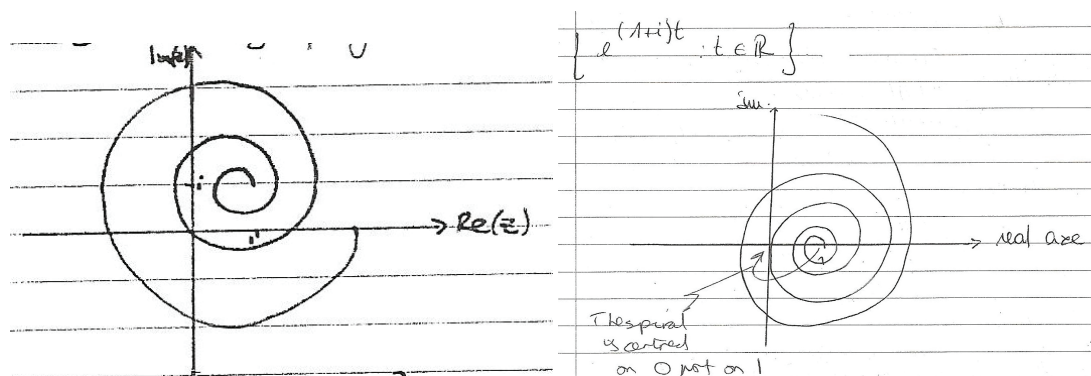 Im(z)
i
1
Re(z)
{ e^(1+i)t : t ∈ ℝ }
im.
real axe
The spiral
is centred
on 0 not on 1